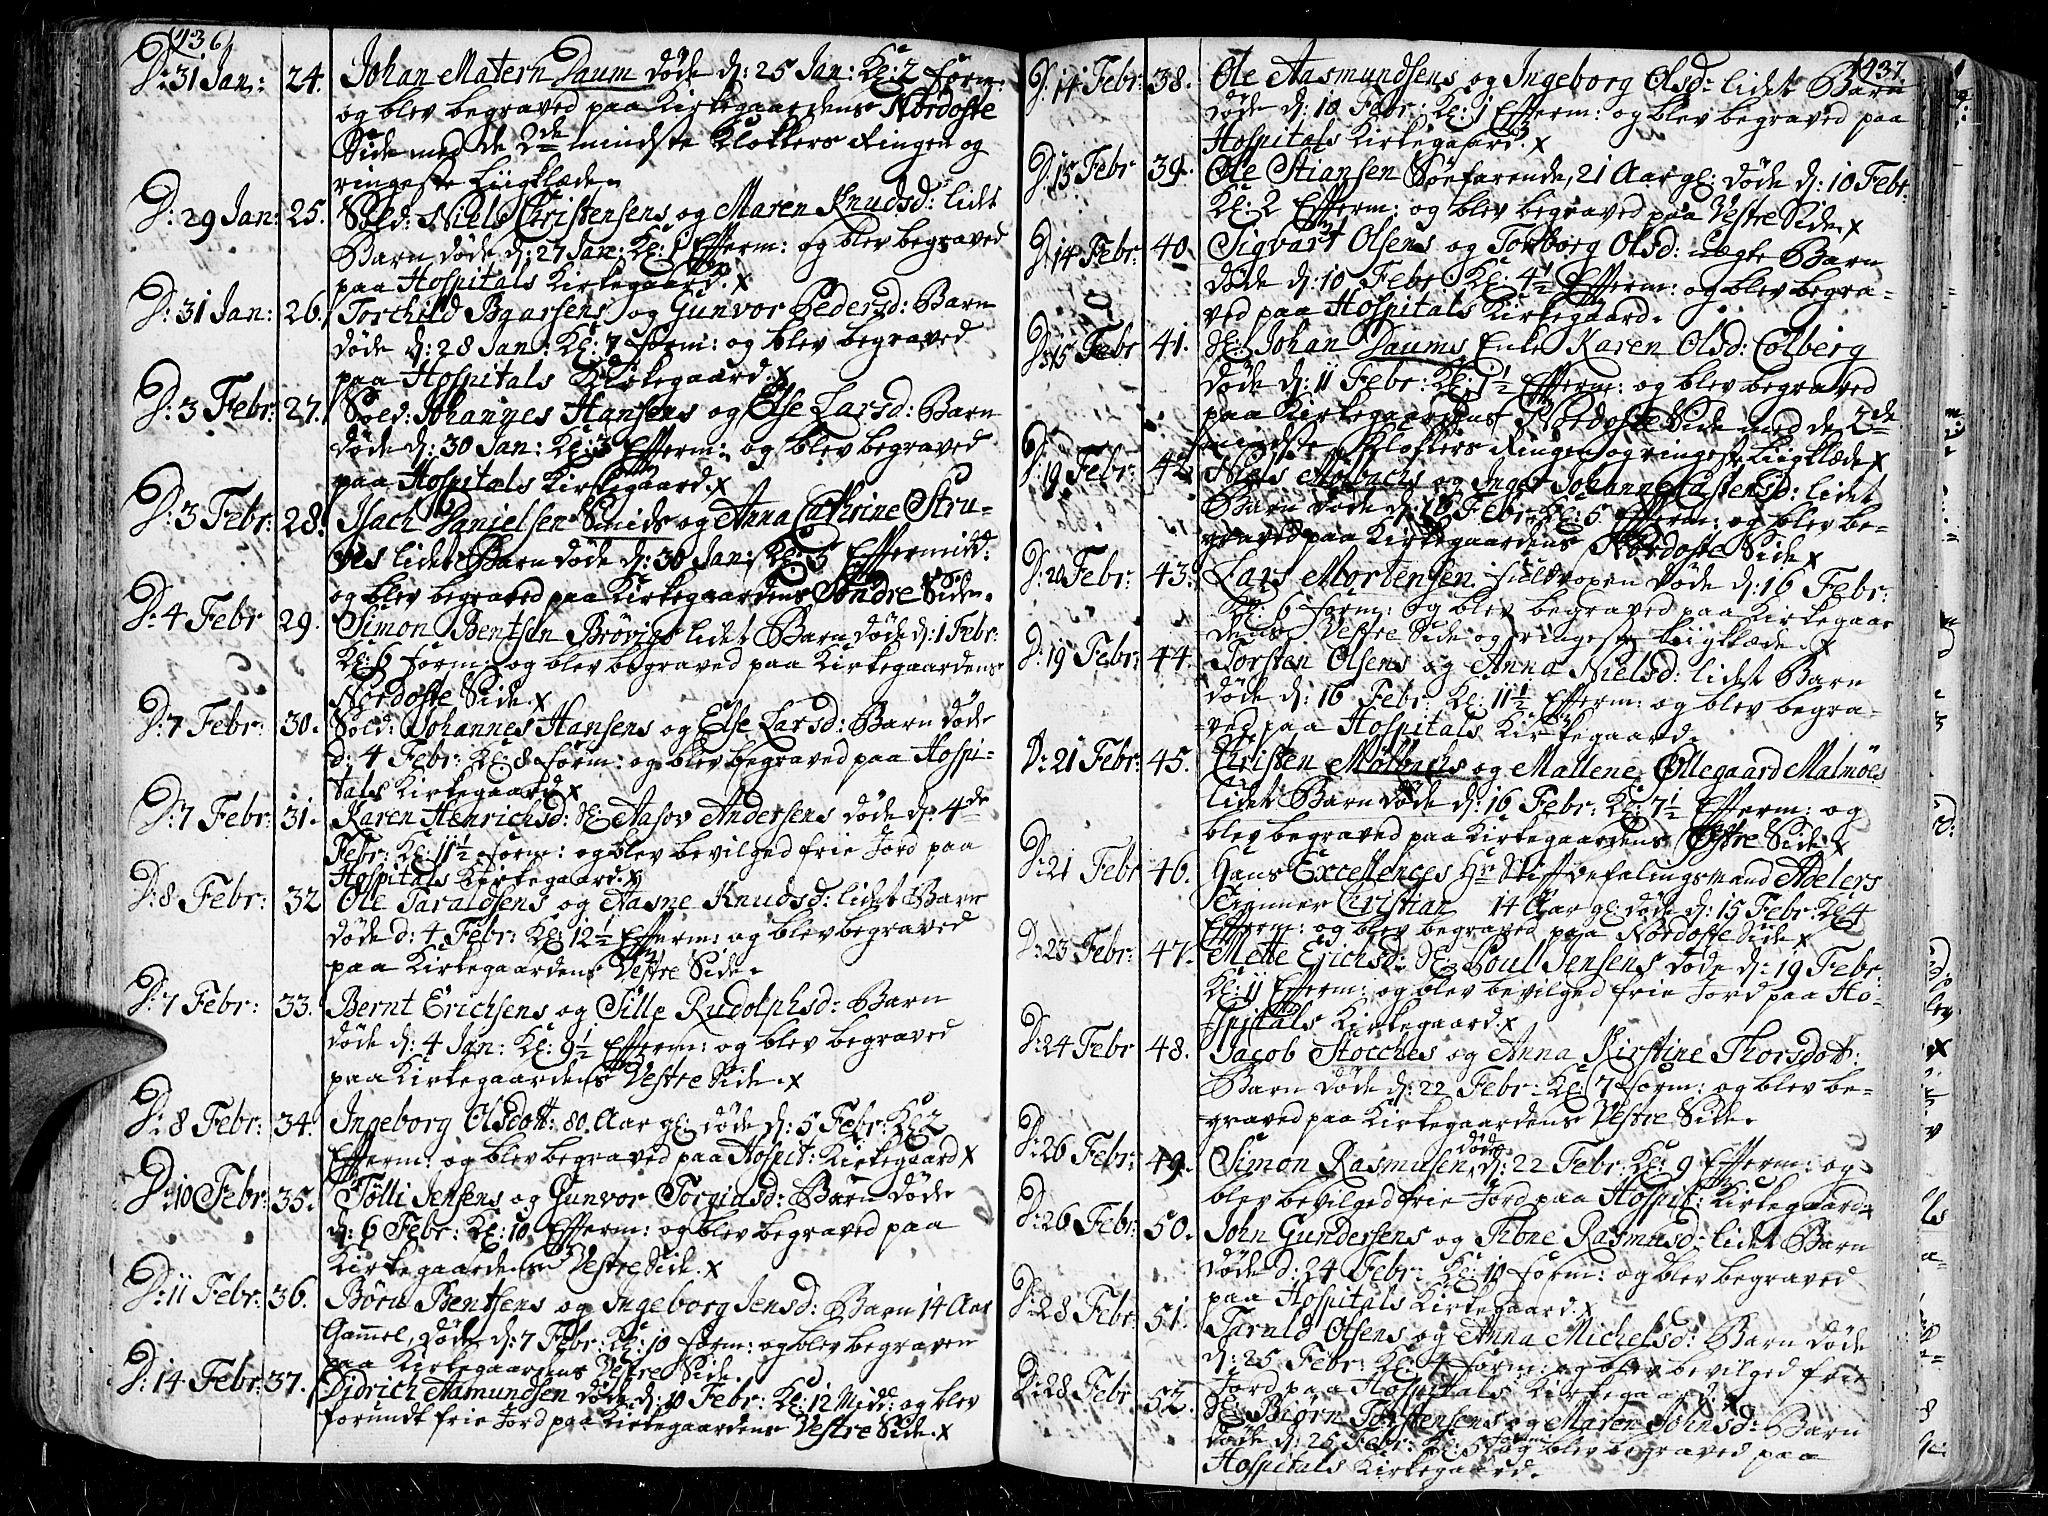 436
D: 31 Jan: 24. Johan Matern Daum døde d: 25 Jan: Kl: 2 form:
og blev begraved paa Kirkegaardens Nordoste
Side med de 2de mindste Klokkers Ringen og
ringeste Liigklæde
D: 29 Jan: 25. Sold: Niels Christensens og Maren Knudsd: lidet
Barn døde d: 27 Jan: Kl: 1 Efterm: og blev begraved
paa Hospitals Kirkegaard. x
D: 31 Jan: 26. Torchild Bgarsens og Gunvor Pedersd: Barn
døde d: 28 Jan: Kl: 7 form: og blev begraved
paa Hospitals Kirkegaard. x
D: 3 Febr: 27. Soed: Johannes Hansens og Else Larsd: Barn
døde d: 30 Jan: Kl: 3 Efterm: og blev begraved
paa Hospitals Kirkegaard. x
D: 3 Febr: 28. Isach Danielsen Smids og Anna Cathrine Stru-
ves lidet Barn døde d: 30 Jan: Kl: 5 Eftermidd:
og blev begraved paa Kirkegaardens Søndre Side.
D: 4 Febr 29. Simon Bentsen Brøvigs lidet Barn døde d: 1 Febr:
Kl: 6 form: og blev begraved paa Kirkegaardens
Nordoste Side. x
D: 7 Febr: 30. Sold: Johannes Hansens og Else Larsd: Barn døde
d: 4 Febr: Kl: 8 form: og blev begraved paa Hospi-
tals Kirkegaard x
D: 7 Febr: 31. Karen Henrichsd: Sl: Aasov Andersens døde d: 4de
Febr: Kl: 11½ form: og blev bevilged frie Jord paa
Hospitals Kirkegaard. x
D: 8 Febr: 32 Ole Taraldsens og Aasne Knudsd: lidet Barn
døde d: 4 Febr: Kl: 12½ Efterm: og blev begraved
paa Kirkegaardens Vestre Side.
D: 7 Febr: 33. Bernt Erichsens og Sille Rudolphsd: Barn
døde d: 4 Jan: Kl: 9½ Efterm: og blev begraved
paa Kirkegaardens Vestre Side. x
D: 8 Febr: 34. Ingeborg Olsdott: 80 Aar gl: døde d: 5 Febr: Kl: 2
Efterm: og blev begraved paa Hospit: Kirkegaard x
D: 10 Febr: 35. Tølli Jensens og Gunvor Torgiusd: Barn døde
d: 6 Febr: Kl: 10 Efterm: og blev begraved paa
Kirkegaardens Vestre Side. x
D: 11 Febr: 36. Børu Bentsens og Ingeborg Jensd: Barn 14 Aar
Gammel, døde d: 7 Febr: Kl: 10 form: og blev begraven
paa Kirkegaardens Vestre Side.
D: 14 Febr: 37. Didrich Aamundsen døde d: 10 Febr: Kl: 12 Midd: og blev
forundt frie Jord paa Kirkegaardens Vestre Side. x
437.
D: 14 Febr: 38. Ole Aasmundsens og Ingeborg Olsd: lidet Barn
døde d: 10 Febr: Kl: 1 Efterm: og blev begraved paa
Hospitals Kirkegaard. x
D: 15 Febr 39. Ole Stiansen Søefarende, 21 Aar gl: døde d: 10 Febr:
Kl: 2 Efterm: og blev begraved paa Vestre Side. x
D: 14 Febr: 40. Sigvart Olsens og Torborg Olsd: uegte Barn
døde d: 10 Febr Kl: 4½ Efterm: og blev begra-
ved paa Hospitals Kirkegaard.
D: 15 Febr 41. Sl: Johan Daums Enke Karen Olsd: Colberg
døde d: 11 Febr: Kl: 1½ Efterm: og blev begraved
paa Kirkegaardens Nordoste Side med de 2de
mindste Klokkers Ringen og ringeste Liigklæde x
D: 19 Febr: 42. Niels Mølbachs og Inger Johanne Carstensd: lidet
Barn døde d: 16 Febr: Kl: 5 Efterm: og blev be-
graved paa Kirkegaardens Nordoste Side x
D: 20 Febr: 43. Lars Mortensen døde d: 16 Febr:
Kl: 6 form: og blev begraved paa Kirkegaar
dens Vestre Side og ringeste Liigklæde. x
D: 19 Febr: 44. Torsten Olsens og Anna Nielsd: lidet Barn
døde d: 16 Febr: Kl: 11½ Efterm: og blev begra-
ved paa Hospitals Kirkegaard.
D: 21 Febr: 45. Christen Mølbachs og Mallene Øllegaard Malmöes
lidet Barn døde d: 16 Febr: Kl: 7½ Efterm: og
blev begraved paa Kirkegaardens Østre Side. x
D: 21 Febr 46. Hans Excellences Hr Stiftbefalingsmand Adelers
Tienner Christian 14 Aar gl: døde d: 15 Febr: Kl: 4
Efterm: og blev begraved paa Nordoste Side x
D: 23 Febr: 47. Mette Erichsd: Sl: Poul Jensens døde d: 19 Febr:
Kl: 11 Efterm: og blev bevilged frie Jord paa Ho-
spitals Kirkegaard. x
D: 24 Febr 48. Jacob Stocches og Anna Kirstine Thorsdott:
Barn døde d: 22 Febr: Kl: 7 form: og blev be-
graved paa Kirkegaardens Vestre Side.
D: 26 Febr: 49. Simon Rasmusen døde d: 22 Febr: Kl: 9 Efterm: og
blev bevilged frie Jord paa Hospit: Kirkegaard x
D: 26 Febr: 50. John Gundersens og Tibne Rasmusd: lidet Barn
døde d: 24 Febr: Kl: 10 form: og blev begraved
paa Hospitals Kirkegaard. x
D: 28 Febr: 51. Tarald Olsens og Anna Michelsd: Barn døde
d: 25 Febr: Kl: 4 form: og blev bevilged frie
Jord paa Hospitals Kirkegaard. x
D: 28 Febr 52. Sl: Biørn Torstensens og Maren Johnsd: Barn
døde d: 25 Febr: Kl: 5 form og blev begraved paa
Hospitals Kirkegaard.